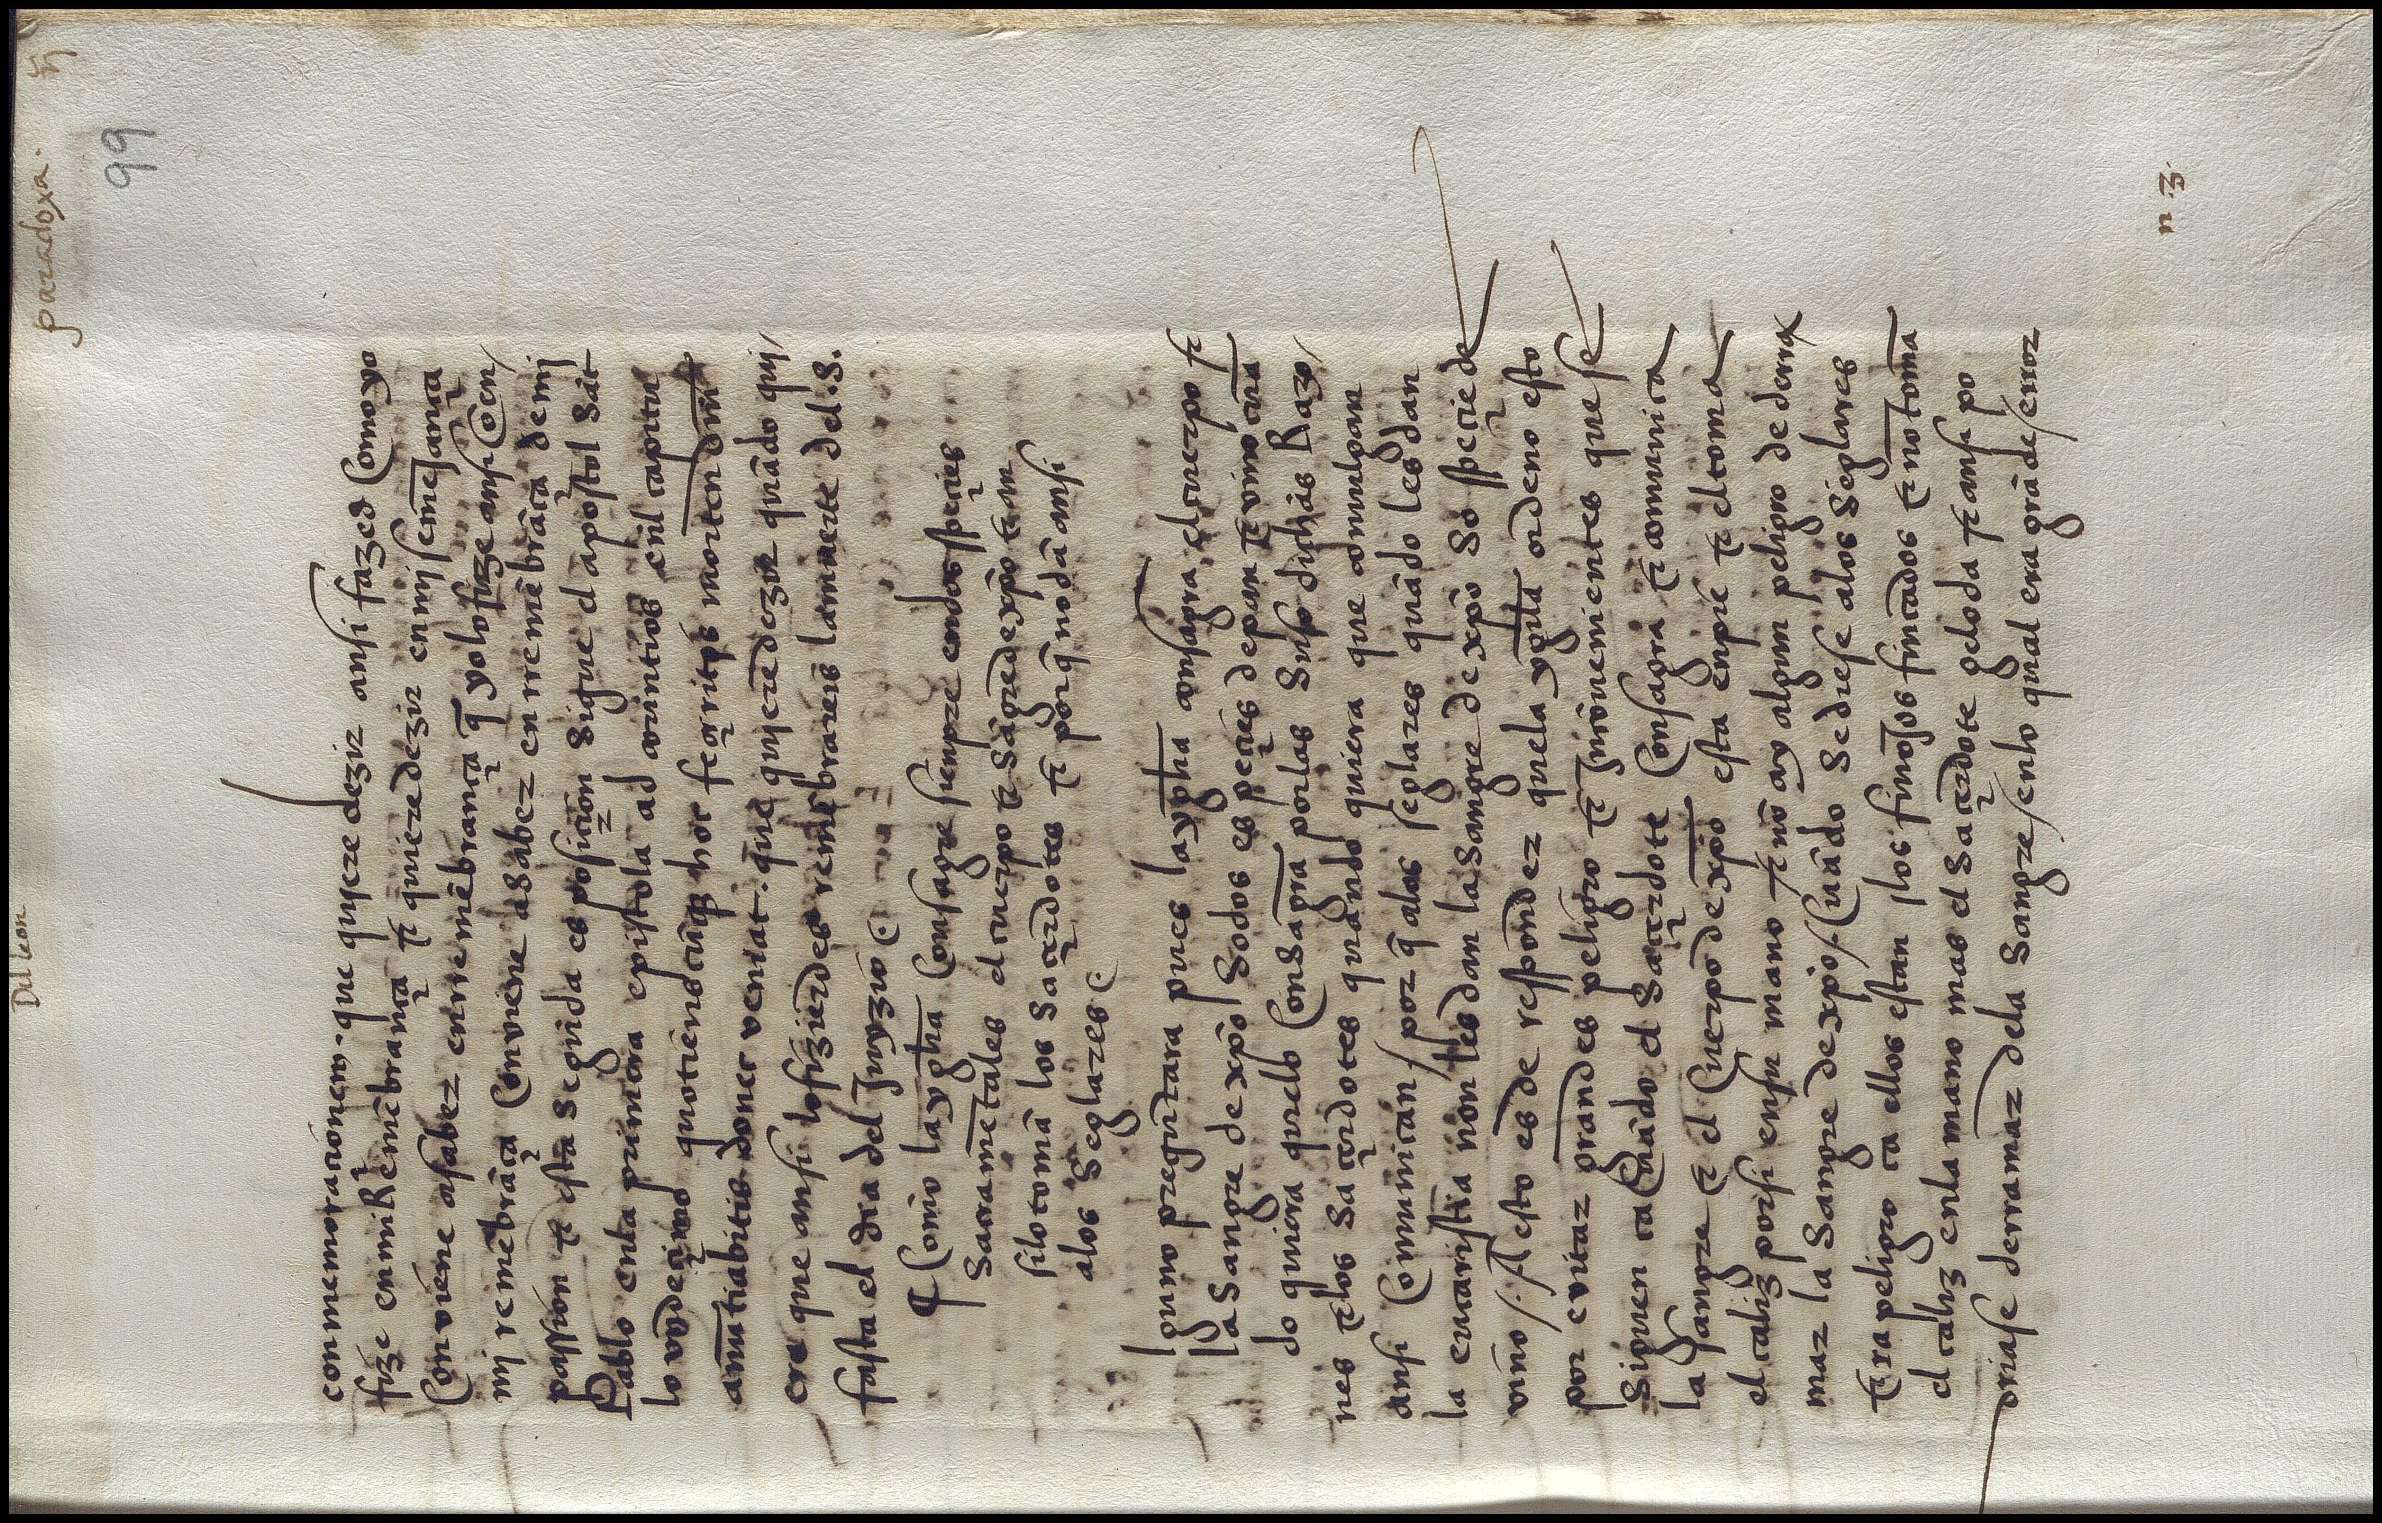 Del leon
paradoxa.
99
conmemoracionem. que quyere dezir ansi fazed Como yo
fize en mi Remēbrança & quiere dezir en mj semeJança
Conviene asaber en rremēbrança q̄ yo lo fize ansi Con/
mj remēbrāça Conviene asaber en rremēbrāça de mj
passion & esta segūda esposiçion sigue el apostol Sāt
pablo en la primera epistola ad corintios en el capitu
lo vndeçimo quotienscūq̄ hoc feçeritis mortem dm̄
anuntiabitis donec veniat. que quyere dezir quādo qui/
ere que ansi lo fizierdes remēbrareis la muerte del .S.
fasta el dia del Juyzio
¶ Como la yglīa Consagre sienpre en dos speçies
Sacramētales el cuerpo & Sāgre de xp̄o & com̄
si lo tomā los saçerdotes & porq̄ no dā ansi
a los seglares
lguno pregūtara pues la yglīa consagra el cuerpo &
la Sangre de xp̄o so dos espeçies de pan & vino cua
do quiera quello Consagra por las suso dichas Razo/
nes & los saçerdotes quando quiera que comulgan
ansi Comunican/ por q̄ a los seglares quādo les dan
la eucaristia non les dan la sangre de xp̄o so speçie de
vino /. A esto es de rresponder que la yglīa ordeno esto
por evitar grandes peligro & Jnconvenientes que se
siguen ca Cuādo el saçerdote Consagra & comunica
la sangre & el Cuerpo de xp̄o esta en pie & el toma
el caliz por si en su mano & nō ay algun peligro de derra
mar la sangre de xp̄o /. Cuādo se diese a los seglares
era peligro ca ellos estan los finoJos fincados & no toma
el caliz en la mano mas el saçerdote gelo da & ansi po
driase derramar de la sangre/ en lo qual era grāde error
n 3